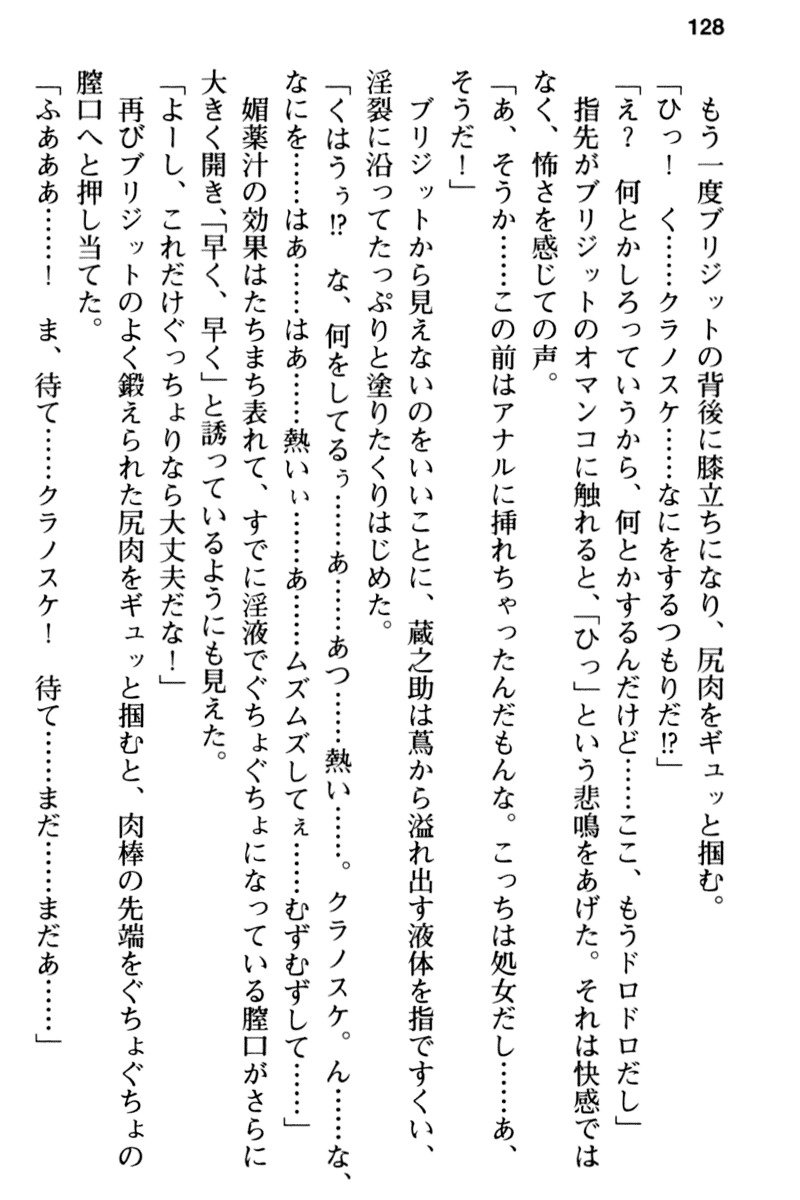 128
もう一度ブリジットの背後に膝立ちになり、尻肉をギュッと掴む。
「ひっ！　く……クラノスケ……なにをするつもりだ!?」
「え？　何とかしろっていうから、何とかするんだけど……ここ、もうドロドロだし」
指先がブリジットのオマンコに触れると、「ひっ」という悲鳴をあげた。それは快感では
なく、怖さを感じての声。
「あ、そうか……この前はアナルに挿れちゃったんだもんな。こっちは処女だし……あ、
そうだ！」
ブリジットから見えないのをいいことに、蔵之助は蔦から溢れ出す液体を指ですくい、
淫裂に沿ってたっぷりと塗りたくりはじめた。
「くはうぅ!?　な、何をしてるぅ……あ……あつ……熱い……。クラノスケ。ん……な、
なにを……はあ……はあ……熱いぃ……あ……ムズムズしてぇ……むずむずして……」
媚薬汁の効果はたちまち表れて、すでに淫液でぐちょぐちょになっている膣口がさらに
大きく開き、「早く、早く」と誘っているようにも見えた。
「よーし、これだけぐっちょりなら大丈夫だな！」
再びブリジットのよく鍛えられた尻肉をギュッと掴むと、肉棒の先端をぐちょぐちょの
膣口へと押し当てた。
「ふあああ……！　ま、待て……クラノスケ！　待て……まだ……まだあ……」